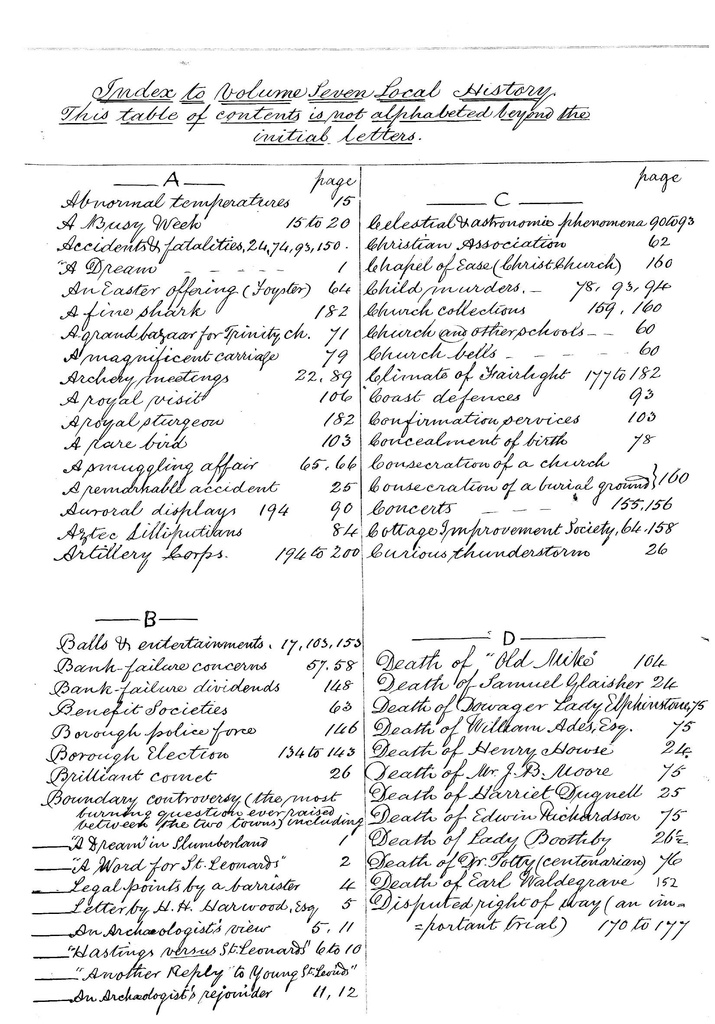 Index to Volume Seven Local History.
This table of contents is not alphabeted beyond the
initial letters.
— A — page
Abnormal temperatures 15
A Busy Week 15 to 20
Accidents & fatalities, 24, 74, 93, 150.
"A Dream - - - - - 1
An Easter offering (Foyster) 64
A fine shark 182
A grand bazaar for Trinity ch. 71
A magnificent carriage 79
Archery meetings 22, 89
A royal visit 106
A royal sturgeon 182
A rare bird 103
A smuggling affair 65, 66
A remarkable accident 25
Auroral displays 194 90
Aztec Lilliputians 84
Artillery Corps. 194 to 200
— B —
Balls & entertainments. 17, 103, 153
Bank-failure concerns 57, 58
Bank-failure dividends 148
Benefit Societies 63
Borough police force 146
Borough Election 134 to 143
Brilliant comet 26
Boundary controversy (the most
burning question ever raised
between the two towns) including
— "A Dream" in Slumberland 1
— "A Word for St. Leonards" 2
— Legal points by a barrister 4
— Letter by H. H. Harwood, Esq 5
— An Archæologist's view 5, 11
— "Hastings versus St. Leonards" 6 to 10
— "Another Reply to Young St. Leonds"
— An Archæologist's rejoinder 11, 12
— C — page
Celestial & astronomic phenomena 90 to 93
Christian Association 62
Chapel of Ease (Christ Church) 160
Child murders. - 78, 93, 94
Church collections 159, 160
Church and other schools - - 60
Church bells - - - - 60
Climate of Fairlight 177 to 182
Coast defences 93
Confirmation services 103
Concealment of birth 78
Consecration of a church
Consecration of a burial ground } 160
Concerts - - - 155, 156
Cottage Improvement Society, 64, 158
Curious thunderstorm 26
— D —
Death of "Old Mike" 104
Death of Samuel Glaisher 24
Death of Dowager Lady Elphinstone, 75
Death of William Ades, Esq. 75
Death of Henry Howse 24
Death of Mr. J. B. Moore 75
Death of Harriet Dugnell 25
Death of Edwin Richardson 75
Death of Lady Boothby
Death of Dr. Totty (centenarian) 76
Death of Earl Waldegrave 152
Disputed right of way (an im=
=portant trial) 170 to 177